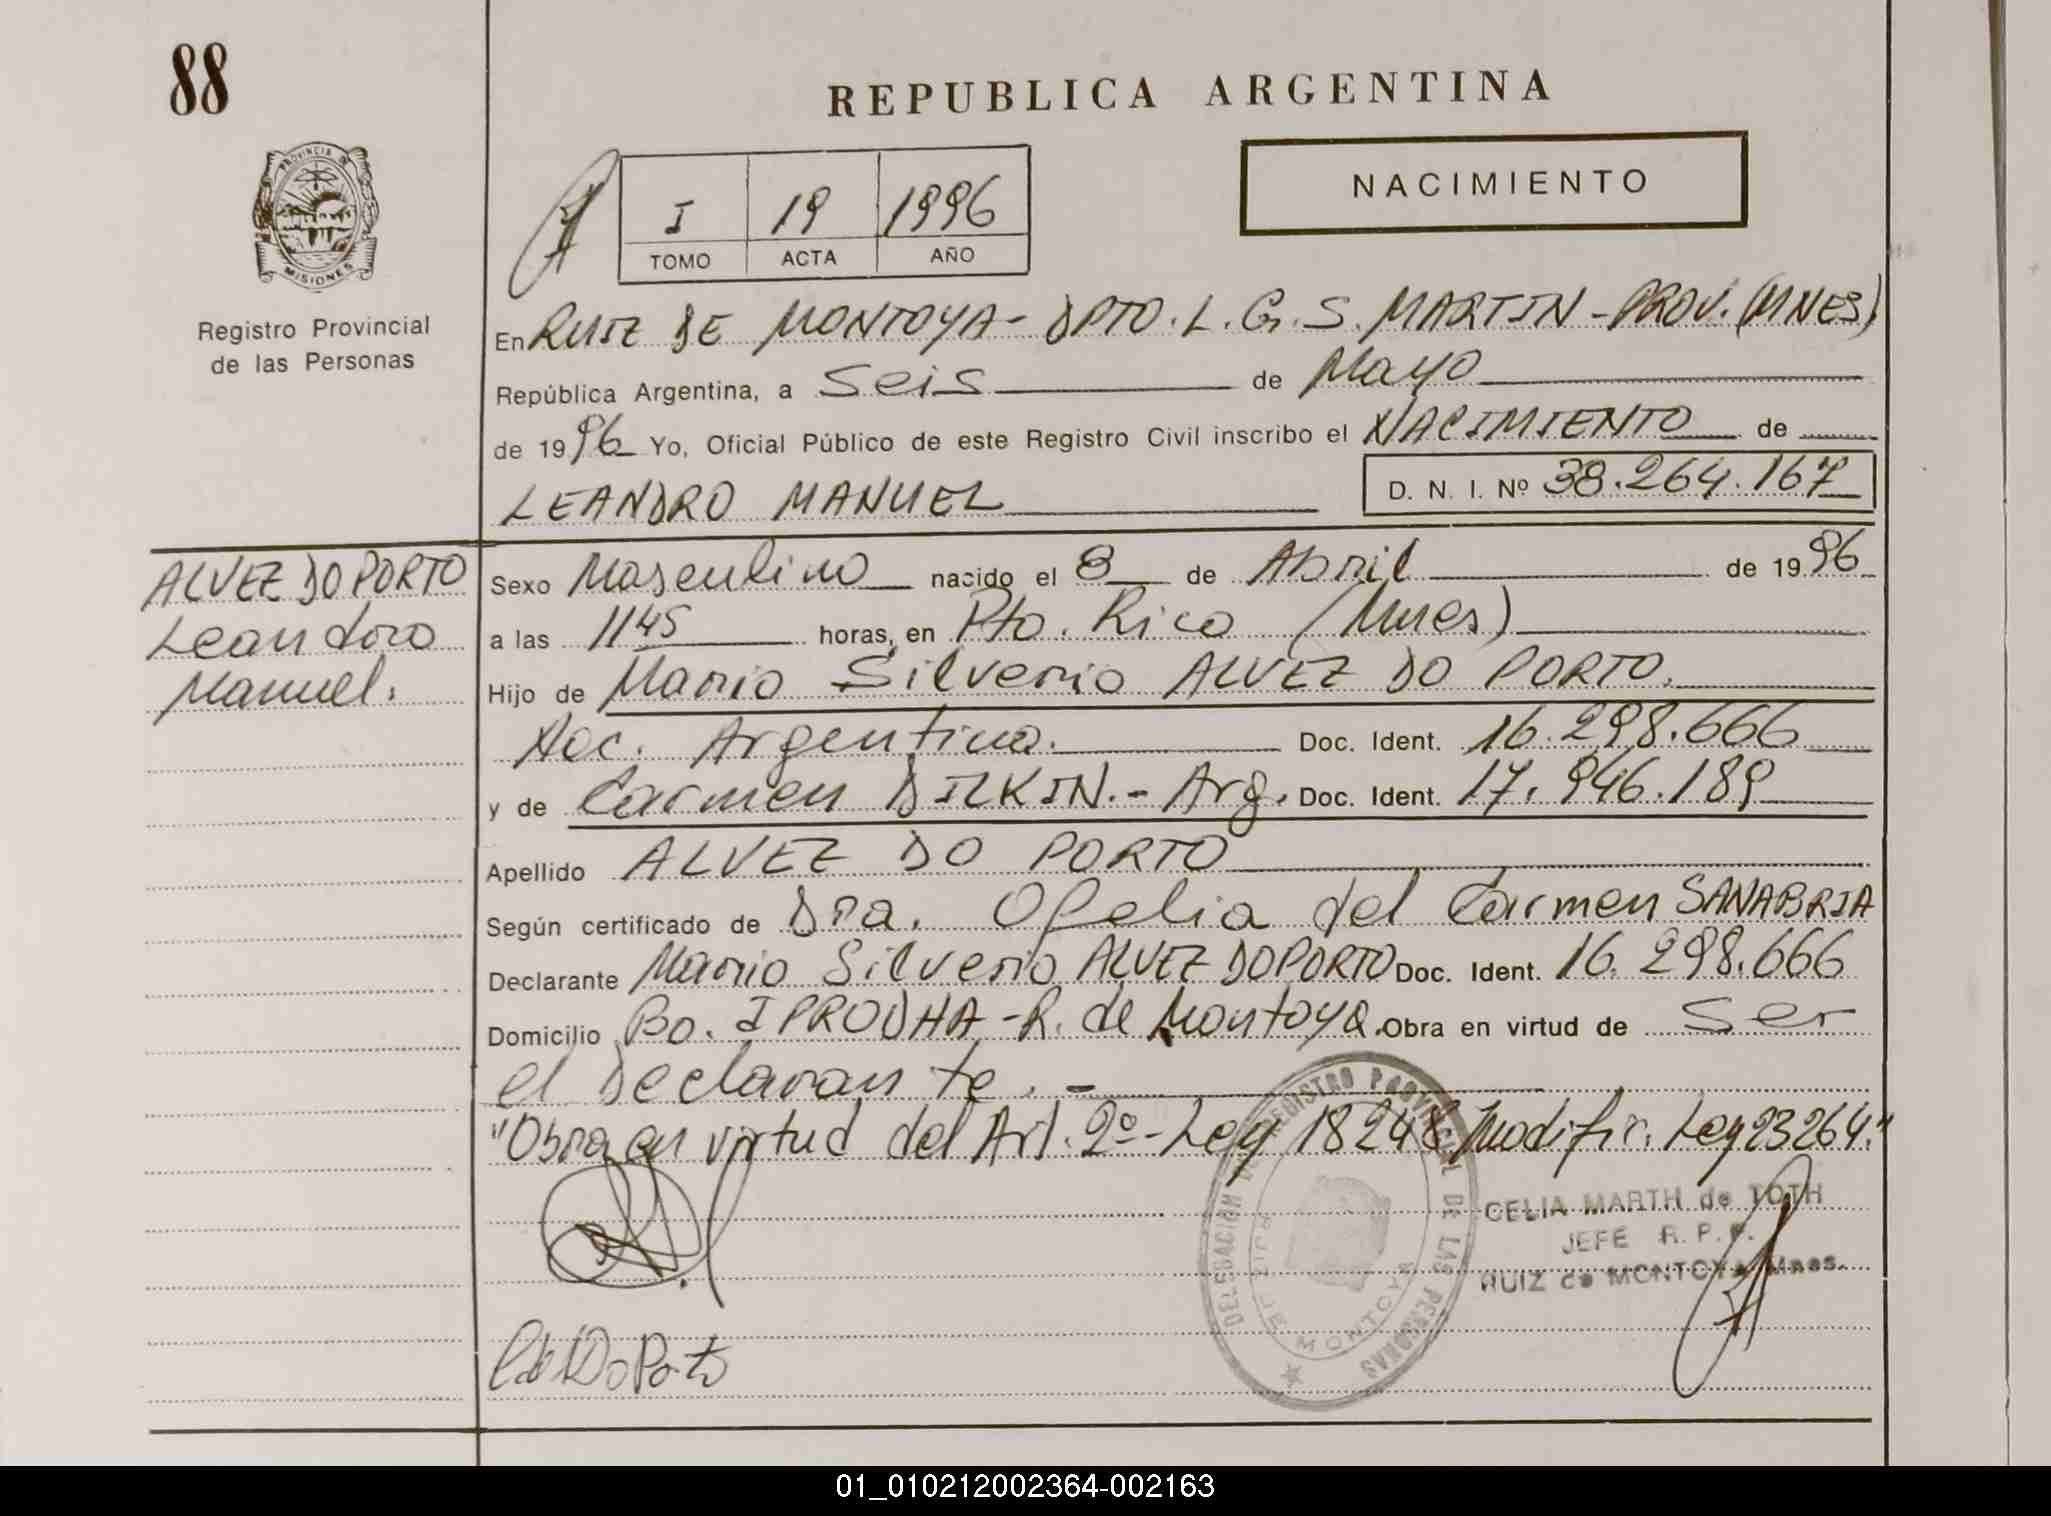 88
REPUBLICA ARGENTINA
PROVINCIA DE
MISIONES
Registro Provincial
de las Personas
I 19 1996
TOMO ACTA AÑO
NACIMIENTO
En RUIZ DE MONTOYA - DPTO. L. G. S. MARTIN - PROV. (MNES)
República Argentina, a Seis de Mayo
de 1996 Yo, Oficial Público de este Registro Civil inscribo el NACIMIENTO de
LEANDRO MANUEL D. N. I. Nº 38.264.167
ALVEZ DO PORTO
Leandro
Manuel.
Sexo Masculino nacido el 8 de Abril de 1996
a las 1145 horas, en Pto. Rico (Mnes)
Hijo de Mario Silverio ALVEZ DO PORTO.
Nac. Argentina. Doc. Ident. 16.298.666
y de Carmen DILKIN.- Arg. Doc. Ident. 17.946.189
Apellido ALVEZ DO PORTO
Según certificado de Dra. Ofelia del Carmen SANABRIA
Declarante Mario Silverio ALVEZ DO PORTO Doc. Ident. 16.298.666
Domicilio Bo. IPRODHA - R. de Montoya. Obra en virtud de Ser
el Declarante.-
"Obra en virtud del Art. 2º- Ley 18248 Modific. Ley 23264."
DELEGACION DE REGISTRO PROVINCIAL DE LAS PERSONAS
RUIZ DE MONTOYA
CELIA MARTH de TOTH
JEFE R. P. P.
RUIZ de MONTOYA Mnes.
Do Porto
01_010212002364-002163